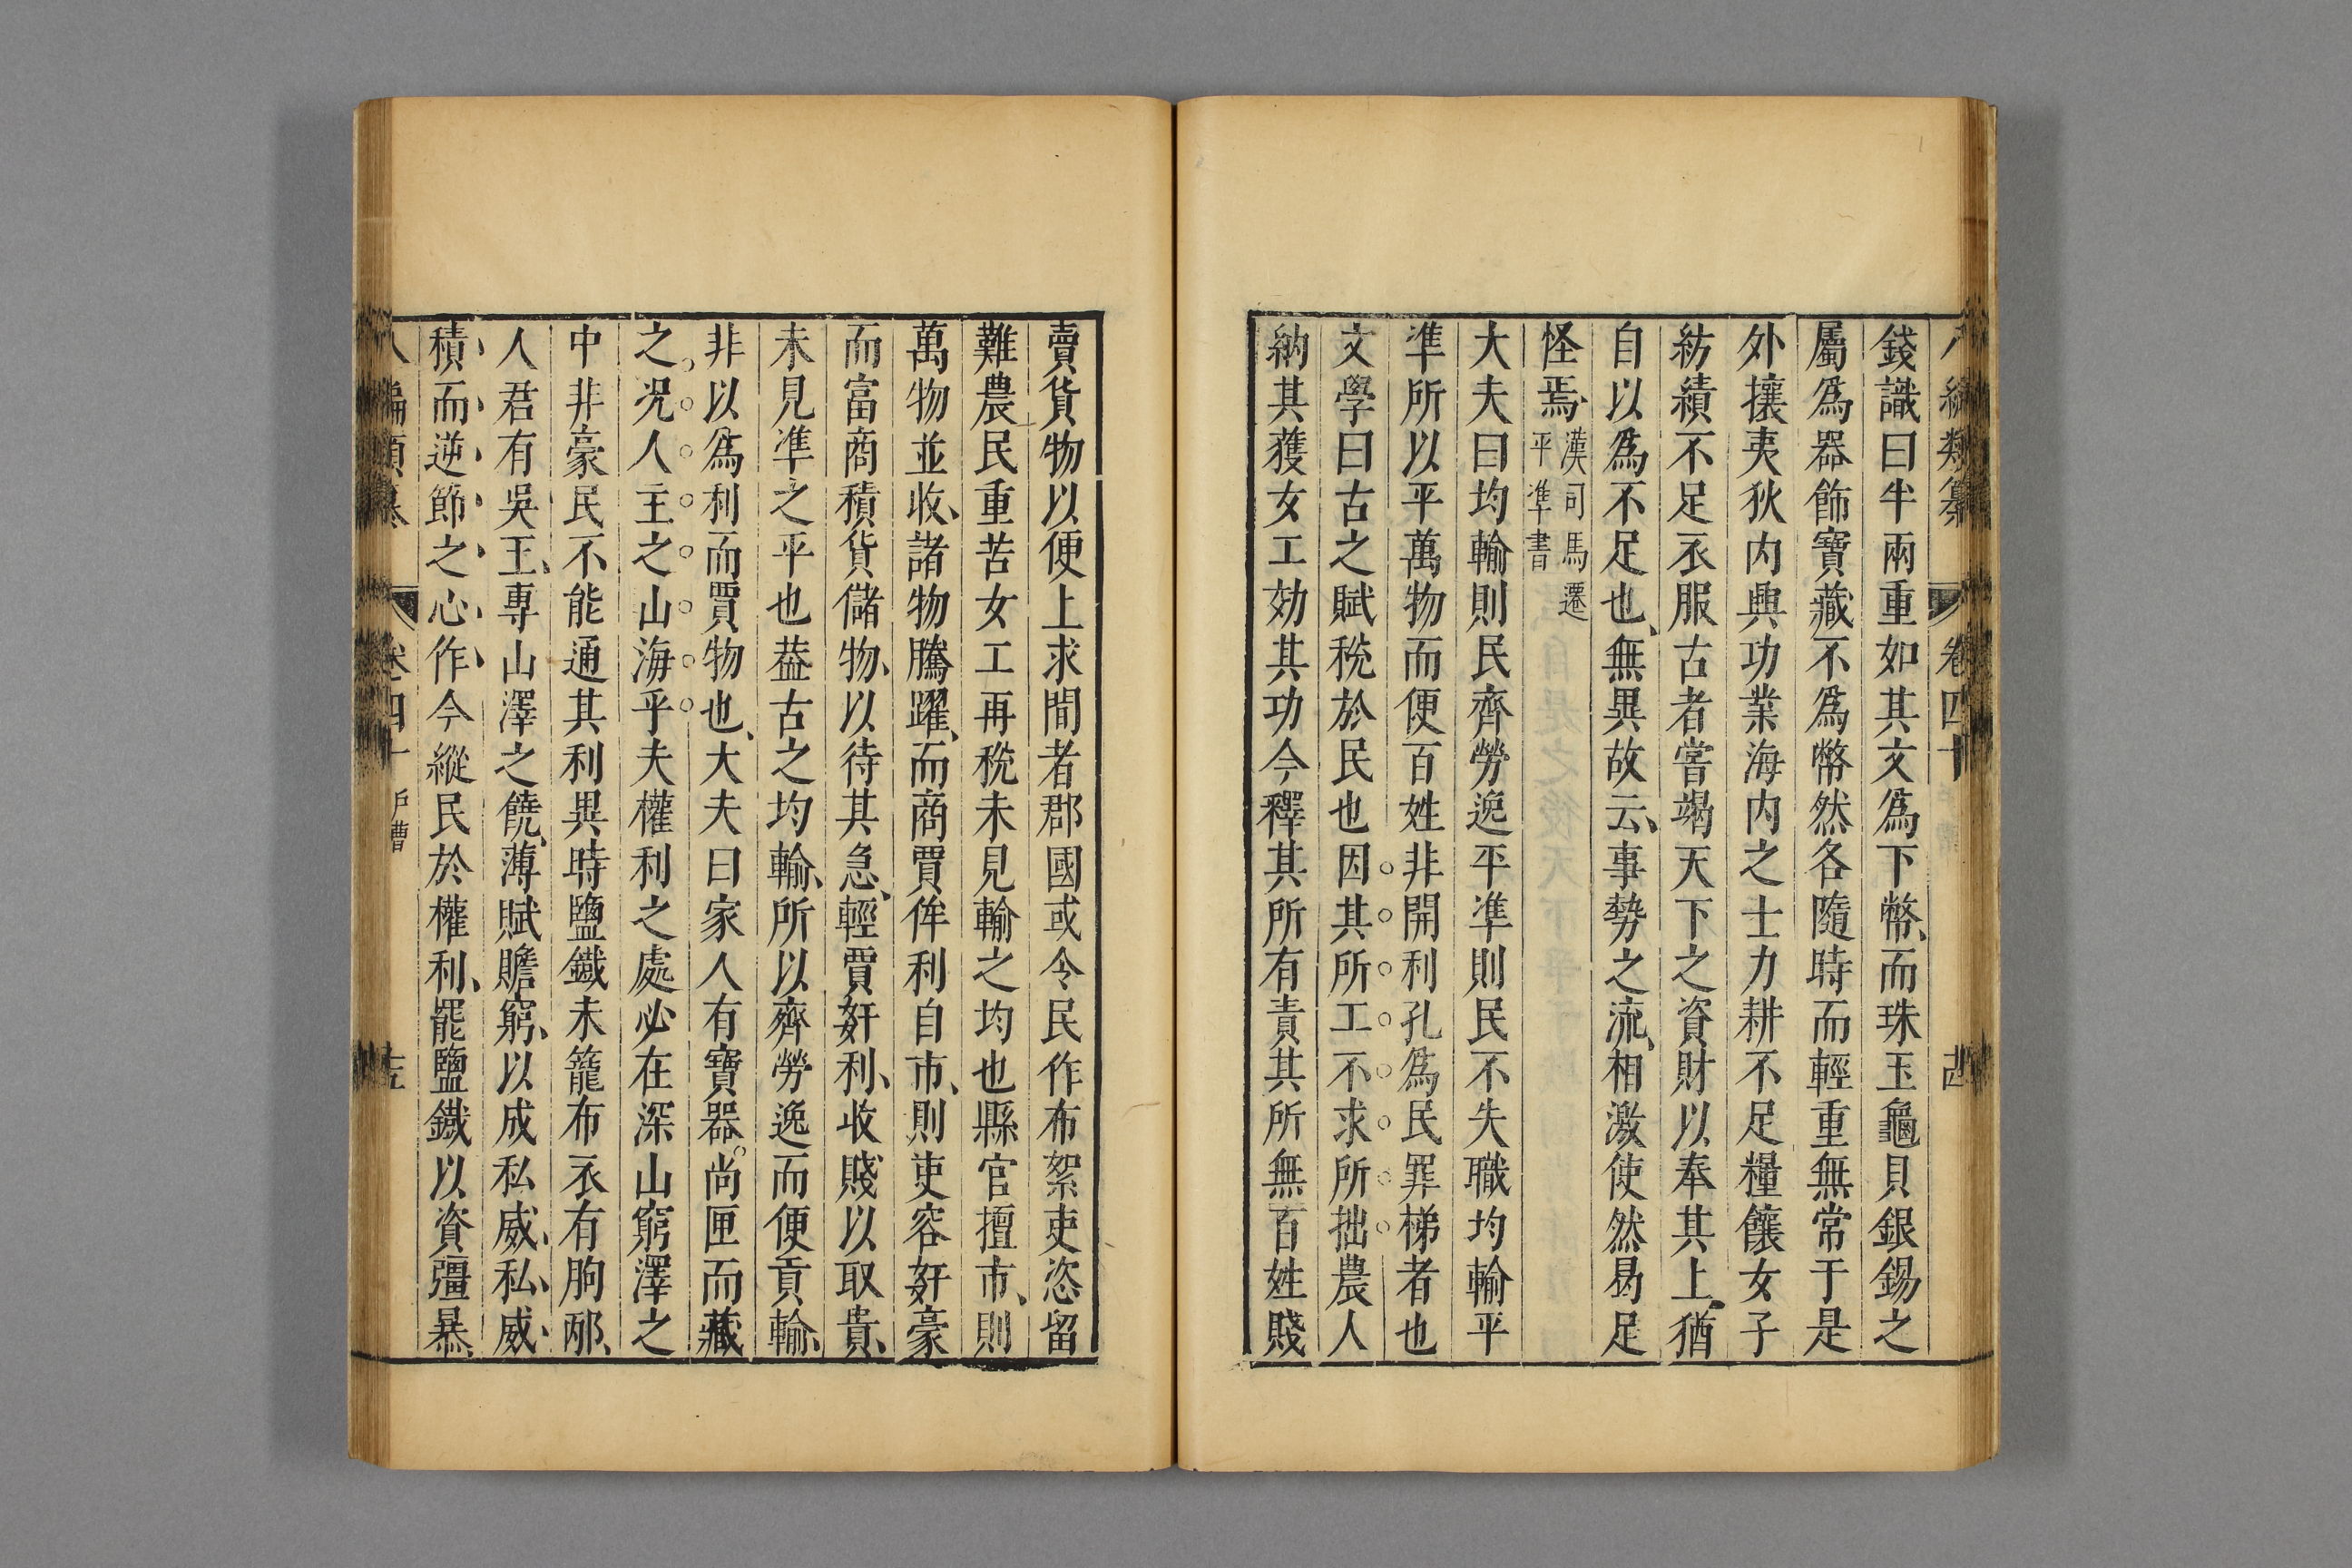 八編類纂 卷四十 十四
錢識曰半兩重如其文爲下幣而珠玉龜貝銀錫之
屬爲器飾寶藏不爲幣然各隨時而輕重無常于是
外攘夷狄内興功業海内之士力耕不足糧饟女子
紡績不足衣服古者嘗竭天下之資財以奉其上猶
自以爲不足也無異故云事勢之流相激使然曷足
怪焉漢司馬遷
平準書
大夫曰均輸則民齊勞逸平準則民不失職均輸平
準所以平萬物而便百姓非開利孔爲民罪梯者也
文學曰古之賦稅於民也因其所工不求所拙農人
納其獲女工効其功今釋其所有責其所無百姓賤
賣貨物以便上求間者郡國或令民作布絮吏恣留
難農民重苦女工再稅未見輸之均也縣官擅市則
萬物並收諸物騰躍而商賈侔利自市則吏容奸豪
而富商積貨儲物以待其急輕賈奸利收賤以取貴
未見準之平也葢古之均輸所以齊勞逸而便貢輸
非以爲利而賈物也大夫曰家人有寶器尚匣而藏
之况人主之山海乎夫權利之處必在深山窮澤之
中非豪民不能通其利異時鹽鐵未籠布衣有朐邴
人君有吳王專山澤之饒薄賦贍窮以成私威私威
積而逆節之心作今縱民於權利罷鹽鐵以資彊暴
八編類纂 卷四十 戶曹 十五